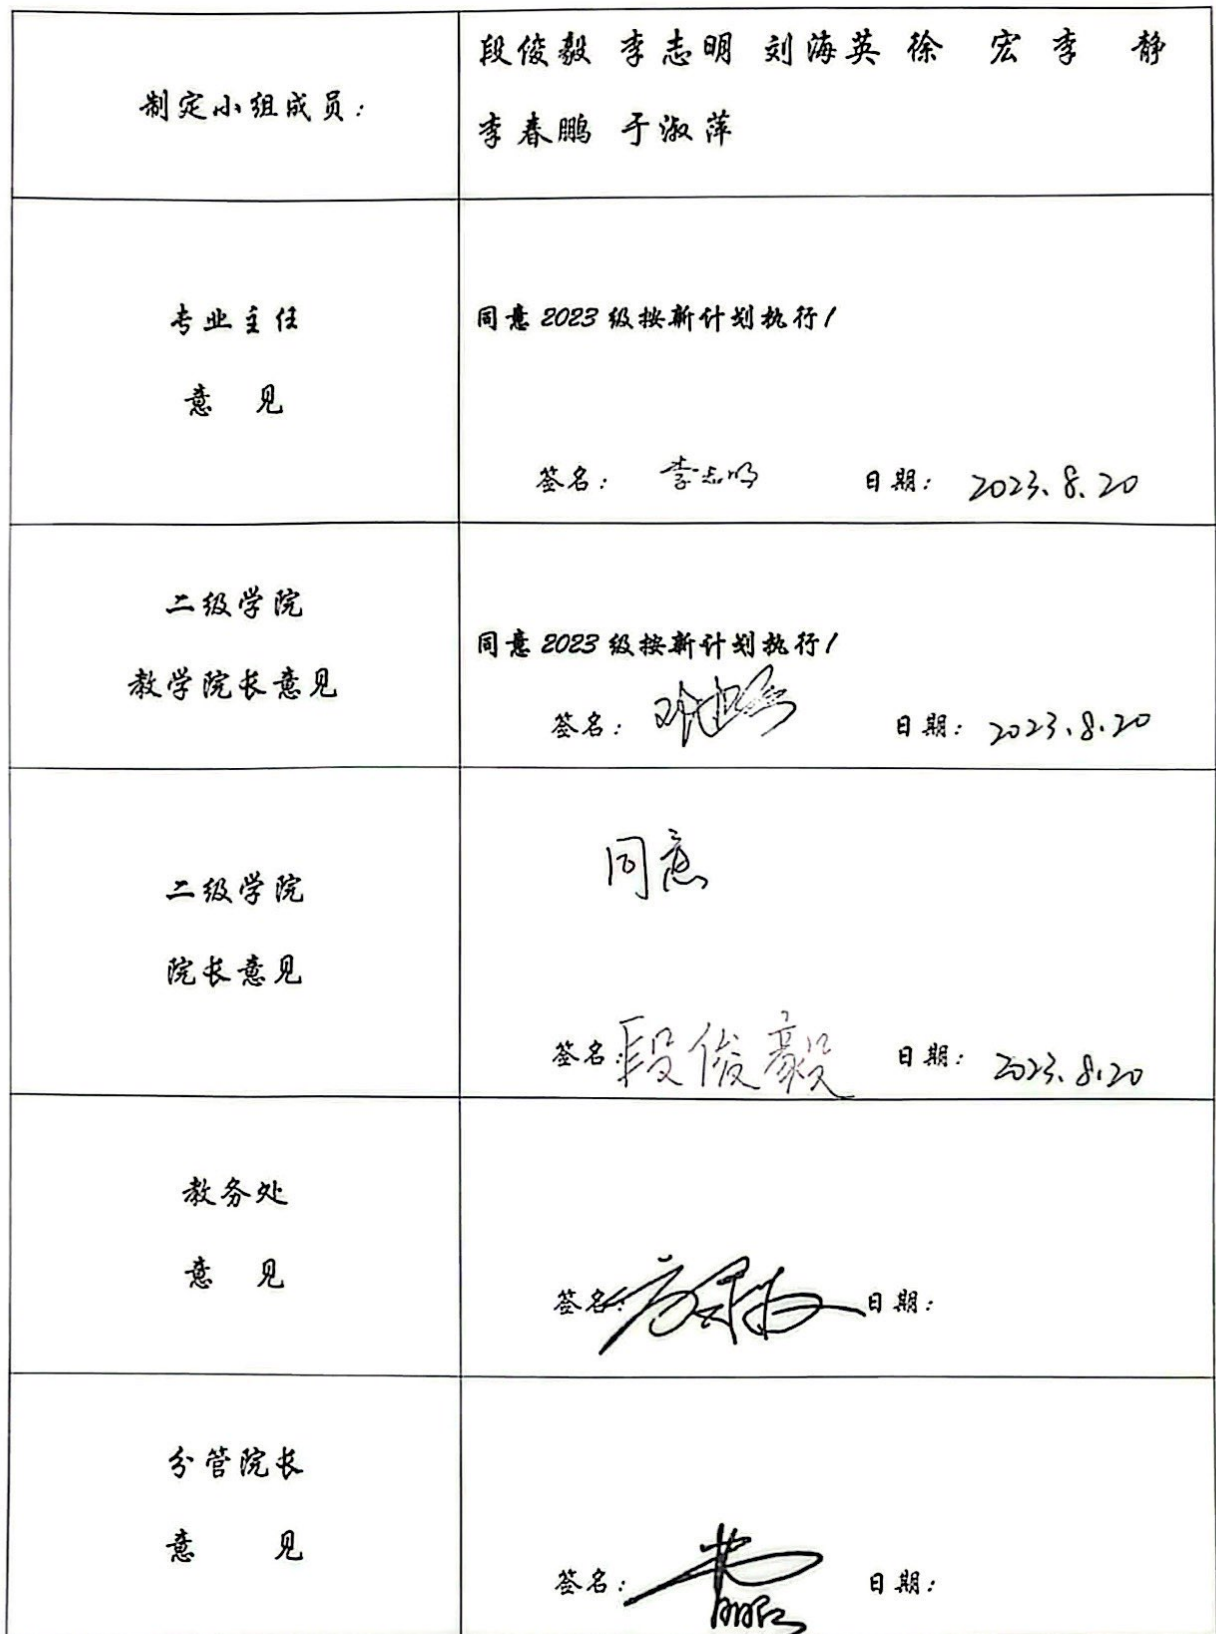 制定小组成员：
段俊毅 李志明 刘海英 徐 宏 李 静
李春鹏 于淑萍
专业主任
意 见
同意 2023 级按新计划执行！
签名： 李志明 日期： 2023.8.20
二级学院
教学院长意见
同意 2023 级按新计划执行！
签名： 日期： 2023.8.20
二级学院
院长意见
同意
签名：段俊毅 日期： 2023.8.20
教务处
意 见
签名： 日期：
分管院长
意 见
签名： 日期：